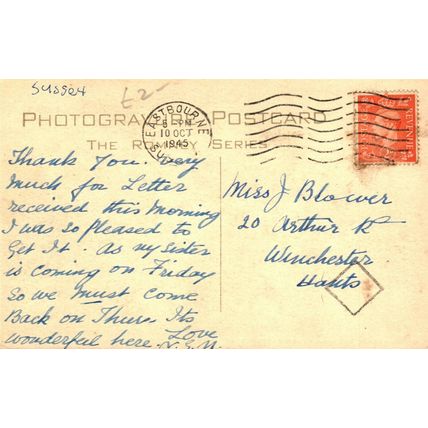 Sussex
£2-
PHOTOGRAVURE POSTCARD
THE R SERIES
EASTBOURNE
6 PM
10 OCT
1945
SUSSEX
Thank you. very
Much for Letter
received this Morning
I was so pleased to
Get It. As my sister
is coming on Friday
So we must come
Back on Thurs. Its
wonderfull here. Love
Miss J Blower
20 Arthur R
Winchester
Hants